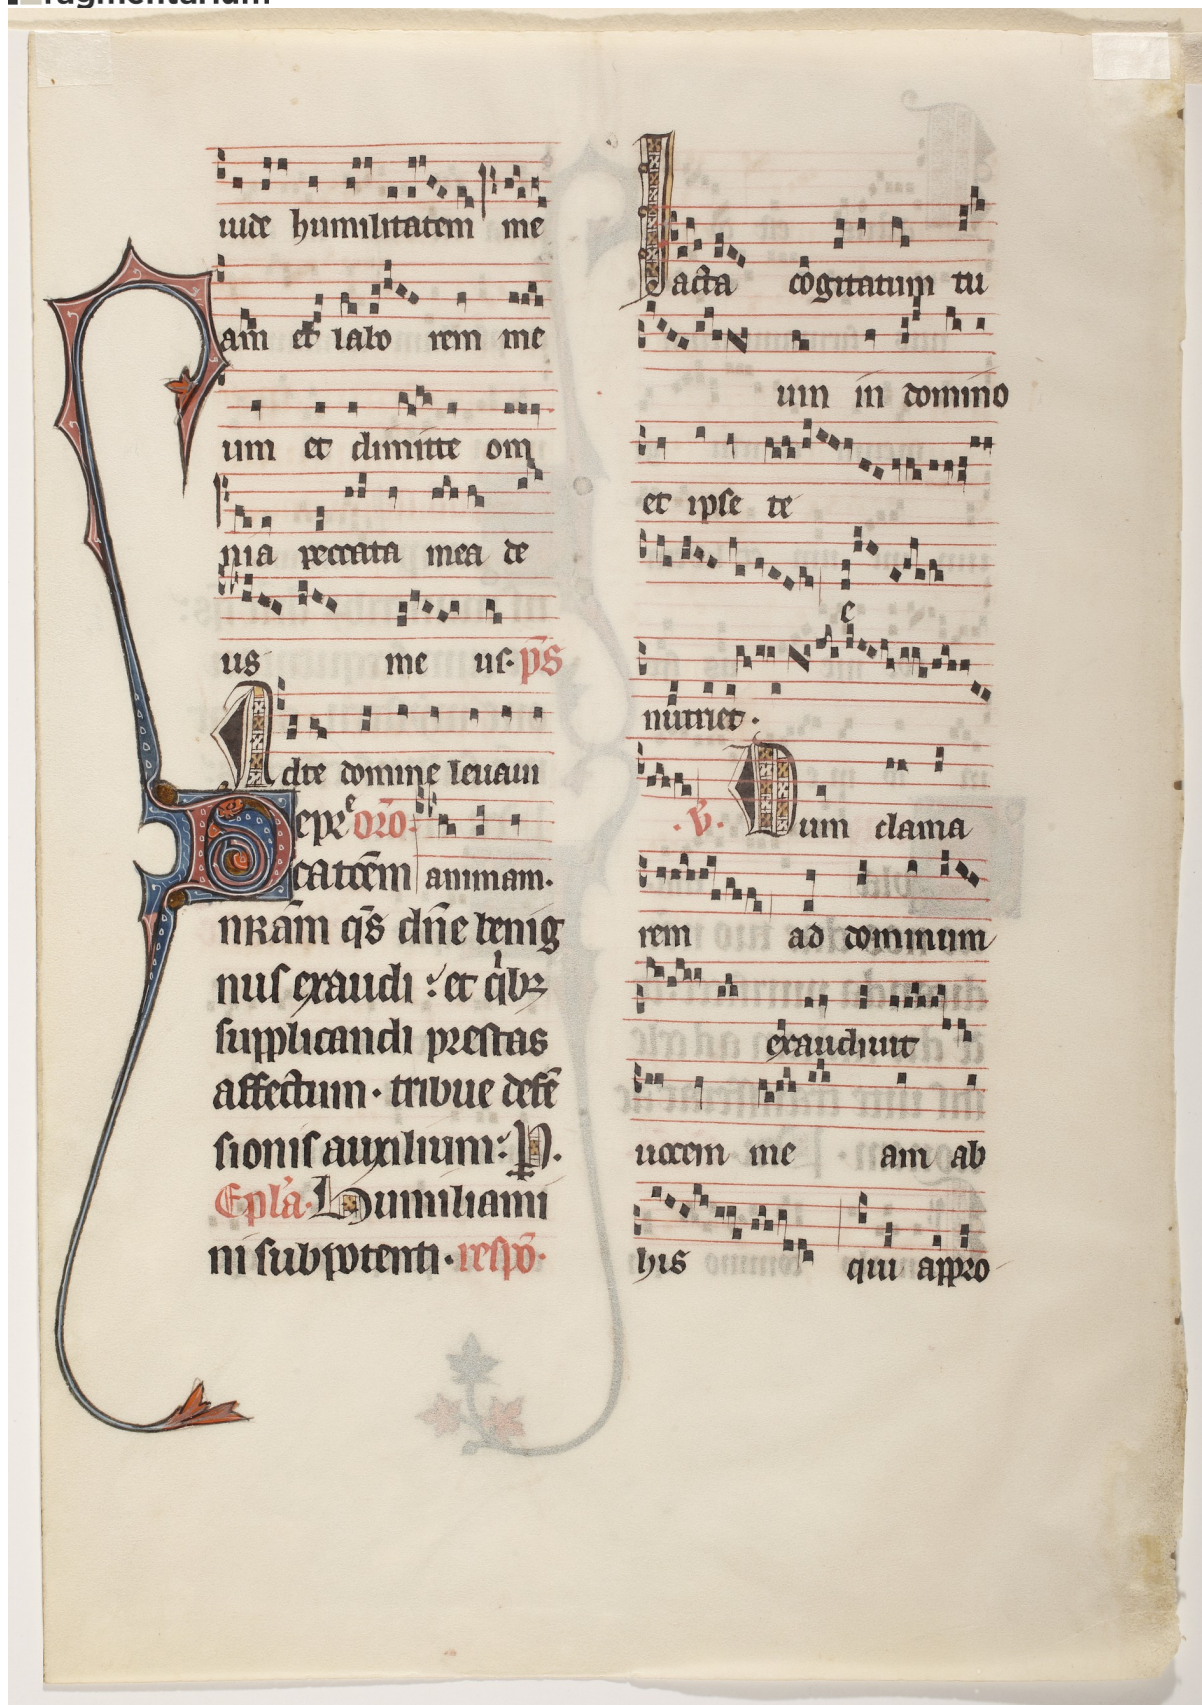 ragmentarium
uide humilitatem me
am et labo rem me
um et dimitte om
nia peccata mea de
us me us. ps̄
Ad te domine leuaui
Depreᵉ orō.
catōem animam.
nr̄am qs̄ dn̄e benig
nus exaudi : et qⁱbꝫ
supplicandi prestas
affectum . tribue defē
sionis auxilium : P.
Epl̄a. Humiliami
ni sub potenti . respō.
Iacta cogitatum tu
um in domino
et ipse te
e
nutriet .
.V̄. Dum clama
rem ad dominum
exaudiuit
uocem me am ab
his qui appro